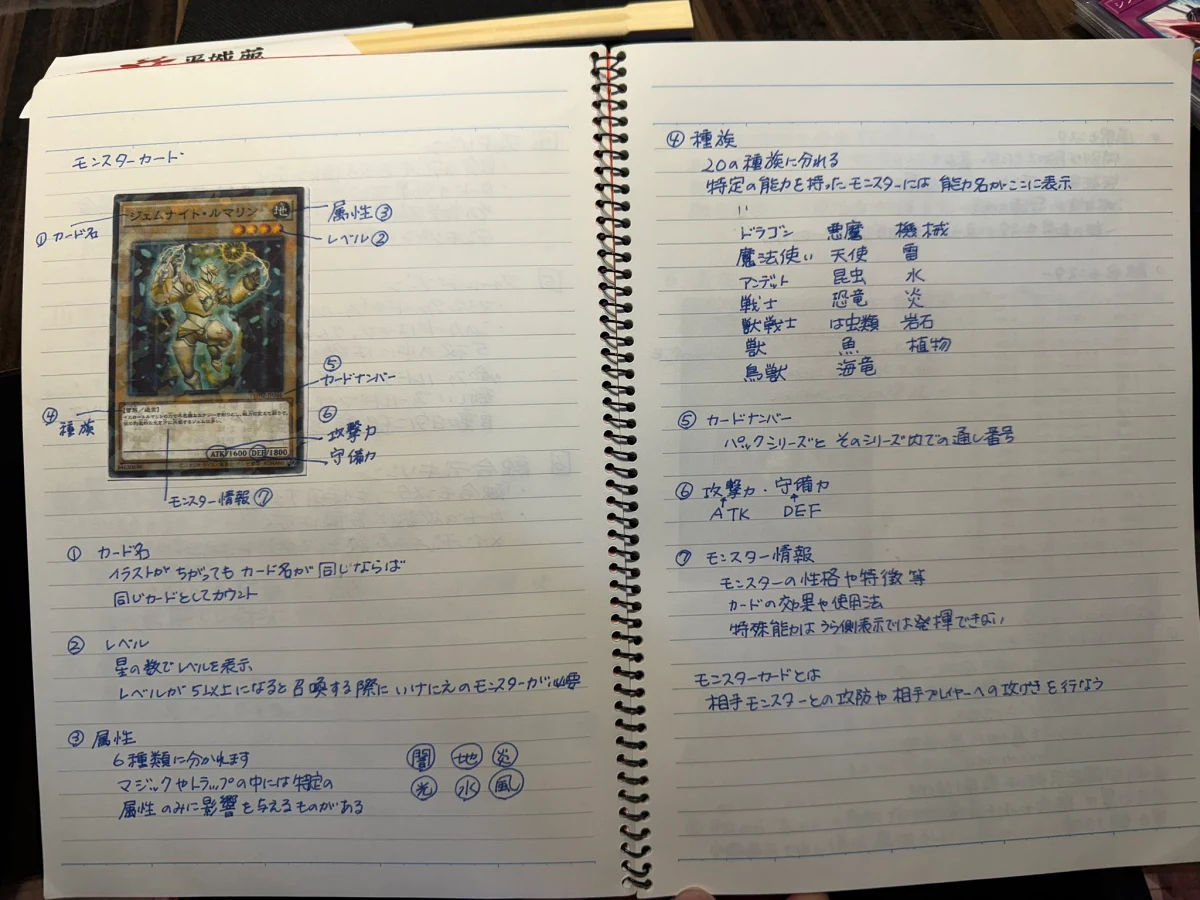 モンスターカード
ジェムナイト・ルマリン
地
① カード名
属性③
レベル②
⑤
カードナンバー
④
種族
⑥
攻撃力
守備力
ATK/1600 DEF/1800
モンスター情報⑦
① カード名
イラストがちがってもカード名が同じならば
同じカードとしてカウント
② レベル
星の数でレベルを表示
レベルが5以上になると召喚する際にいけにえのモンスターが必要
③ 属性
6種類に分かれます
マジックやトラップの中には特定の
属性のみに影響を与えるものがある
闇 地 炎
光 水 風
④ 種族
20の種族に分れる
特定の能力を持ったモンスターには能力名がここに表示
〃
ドラゴン 悪魔 機械
魔法使い 天使 雷
アンデット 昆虫 水
戦士 恐竜 炎
獣戦士 は虫類 岩石
獣 魚 植物
鳥獣 海竜
⑤ カードナンバー
パックシリーズとそのシリーズ内での通し番号
⑥ 攻撃力・守備力
ATK DEF
⑦ モンスター情報
モンスターの性格や特徴等
カードの効果や使用法
特殊能力はうら側表示では発揮できない
モンスターカードとは
相手モンスターとの攻防や相手プレイヤーへの攻げきを行なう